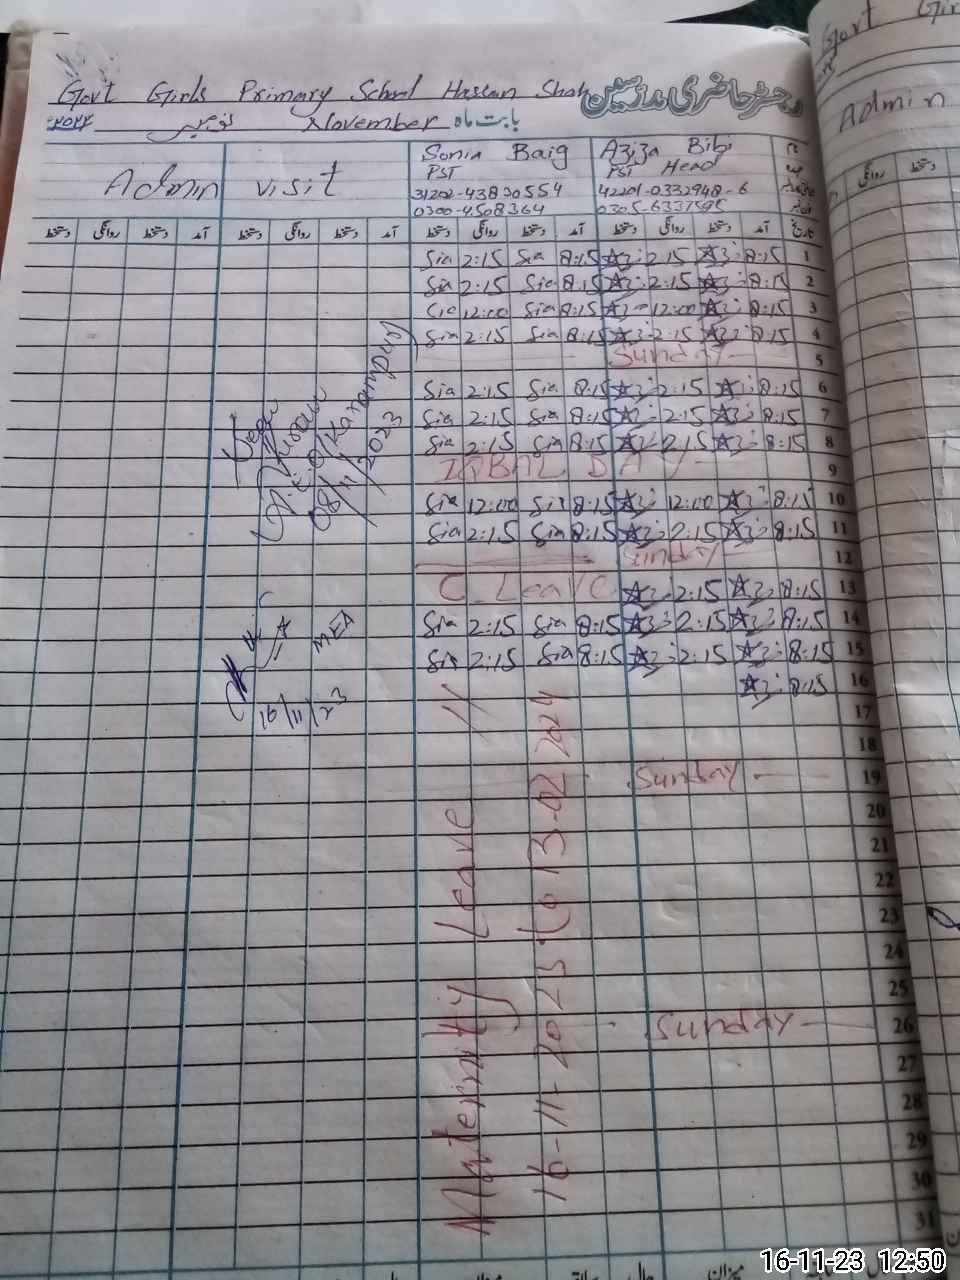 Govt Girls Primary School Hassan Shah رجسٹر حاضری مدرسین
بابت ماہ November نومبر
Admin visit
Sonia Baig Aziza Bibi
PST PST Head
0300-4508364
آمد دستخط روانگی دستخط آمد دستخط روانگی دستخط آمد دستخط روانگی دستخط آمد دستخط روانگی دستخط تاریخ
Sia 2:15 Sia 8:15 2:15 8:15 1
Sia 2:15 Sia 8:15 2:15 8:15 2
12:00 Sia 8:15 12:00 8:15 3
Sia 2:15 Sia 8:15 2:15 8:15 4
Sunday 5
Sia 2:15 Sia 8:15 2:15 8:15 6
Sia 2:15 Sia 8:15 2:15 8:15 7
Sia 2:15 Sia 8:15 2:15 8:15 8
IQBAL DAY 9
Sia 12:00 Sia 8:15 12:00 8:15 10
Sia 2:15 Sia 8:15 2:15 8:15 11
Sunday 12
C Leave 2:15 8:15 13
Sia 2:15 Sia 8:15 2:15 8:15 14
Sia 2:15 Sia 8:15 2:15 8:15 15
8:15 16
17
18
Sunday 19
20
21
22
23
24
25
Sunday 26
27
28
29
30
31
A.E.O/Karampur
08/11/2023
MEA
16/11/23
Maternity Leave
16-11-2023 to 13-02-2024
میزان
Govt
Admin
روانگی دستخط
16-11-23 12:50